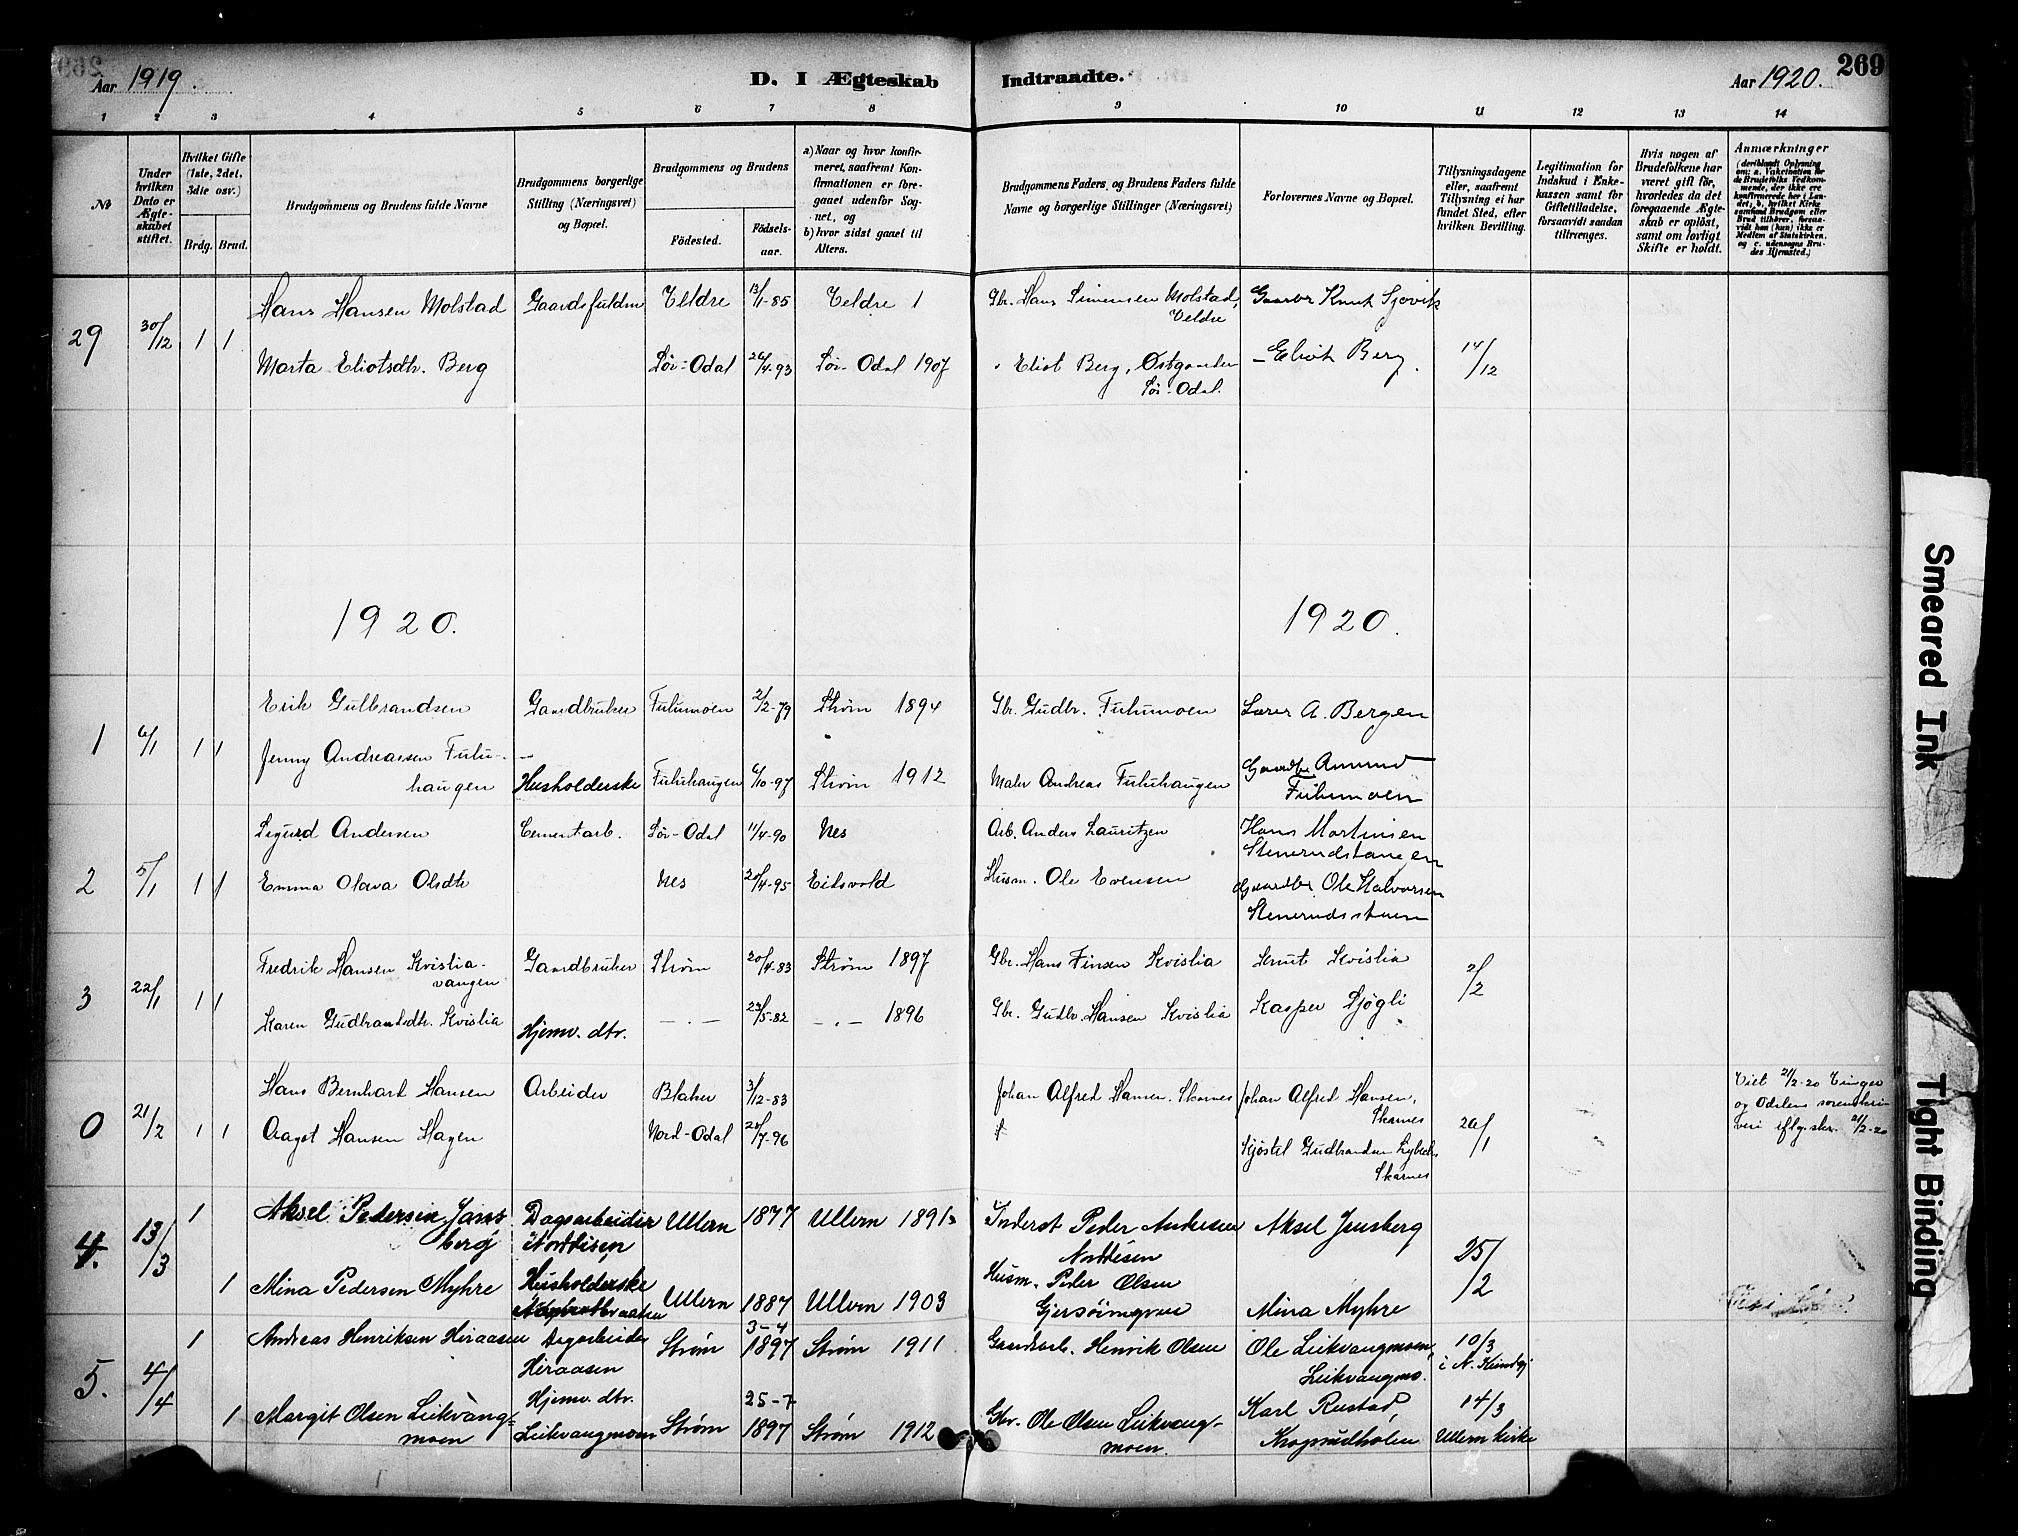 269
Aar 1919.
D. I Ægteskab Indtraadte.
Aar 1920.
1 2 3 4 5 6 7 8 9 10 11 12 13 14
No
Under hvilken Dato er Ægteskabet stiftet.
Hvilket Gifte (1ste, 2det, 3die osv.)
Brdg. Brud.
Brudgommens og Brudens fulde Navne
Brudgommens borgerlige Stilling (Næringsvei) og Bopæl.
Brudgommens og Brudens
Födested.
Födselsaar.
a) Naar og hvor konfirmeret, saafremt Konfirmationen er foregaaet udenfor Sognet, og
b) hvor sidst gaaet til Alters.
Brudgommens Faders, og Brudens Faders fulde Navne og borgerlige Stillinger (Næringsvei)
Forlovernes Navne og Bopæl.
Tillysningsdagene eller, saafremt Tillysning ei har fundet Sted, efter hvilken Bevilling.
Legitimation for Indskud i Enkekassen samt for Giftetilladelse, forsaavidt saadan tiltrænges.
Hvis nogen af Brudefolkene har været gift för, hvorledes da det foregaaende Ægteskab er oplöst, samt om lovligt Skifte er holdt.
Anmærkninger
(deriblandt Oplysning om: a. Vakcination for de Brudefolks Vedkommende, der ikke ere konfirmerede her i Landet; b. hvilket Kirkesamfund Brudgom eller Brud tilhører, forsaavidt han (hun) ikke er Medlem af Statskirken, og c. udensogns Brudes Hjemsted.)
29 30/12 1 1
Hans Hansen Molstad Gaardsfuldm Veldre 13/1-85 Veldre 1 Gbr. Hans Simensen Molstad, Gaardbr Knut Sjøvik
Veldre
Marta Eliotsdtr. Berg Sør-Odal 26/4-93 Sør-Odal 1907 " Eliot Berg, Østgaarden - Eliot Berg. 14/12
Sør-Odal.
1920. 1920.
1 6/1 1 1
Erik Gulbrandsen Gaardbruker Fulumoen 2/2-79 Strøm 1894 Gbr. Gudbr. Fulumoen Lærer A. Bergen
Jenny Andreassen Fulu-
haugen Husholderske Fuluhaugen 6/10-97 Strøm 1912 Maler Andreas Fuluhaugen Gaardbr Amund
Fulumoen
2 5/1 1 1
Sigurd Andersen Cementarb. Sør-Odal 11/4-90 Nes Arb. Anders Lauritzen Hans Martinsen
Stenerudstangen
Emma Olava Olsdtr Nes 20/4-95 Eidsvold Husm. Ole Evensen Gaardbr Ole Halvorsen
3 22/1 1 1
Fredrik Hansen Kvislia-
vangen Gaardbruker Strøm 20/4-83 Strøm 1897 Gbr. Hans Finsen Kvislia Knut Kvislia 2/2
Karen Gudbrandsdtr. Kvislia Hjemv. dtr. -"- 29/5-82 -"- 1896 Gbr. Gudbr. Hansen Kvislia Kasper Sjøgli
0 21/2 1 1
Hans Bernhart Hansen Arbeider Blaker 3/12-83 Johan Alfred Hansen. Skarnes Johan Alfred Hansen,
Skarnes
Viet 21/2-20 Vinger
og Odalens sorenskri-
veri iflg. skr. 21/2-20
Aagot Hansen Hagen Nord-Odal 20/7-96 20/1
Kjøstel Gudbrandsen
Skarnes
4. 13/3 1 1
Aksel Pedersen Jans
berg Dagsarbeider
Norttisen Ullern 1877 Ullern 1891 Inderst Peder Andersen
Norttisen Aksel Jensberg 25/2
Mina Pedersen Myhre Husholderske Ullern 1887 Ullern 1903 Husm. Peder Olsen Mina Myhre
5. 4/4 1 1
Andreas Henriksen Hiraasen Dagarbeider
Hiraasen Strøm 3-4
1897 Strøm 1911 Gaardarb. Henrik Olsen Ole Leikvangmoen,
Leikvangmo. 10/3
Margit Olsen Leikvang-
moen Hjemv. dtr.
Leikvangmoen Strøm 25-7
1897 Strøm 1912 Gbr. Ole Olsen Leikvang-
moen. Karl Rustad
Krogrudholen 14/3
Ullern kirke
Smeared Ink
Tight Binding